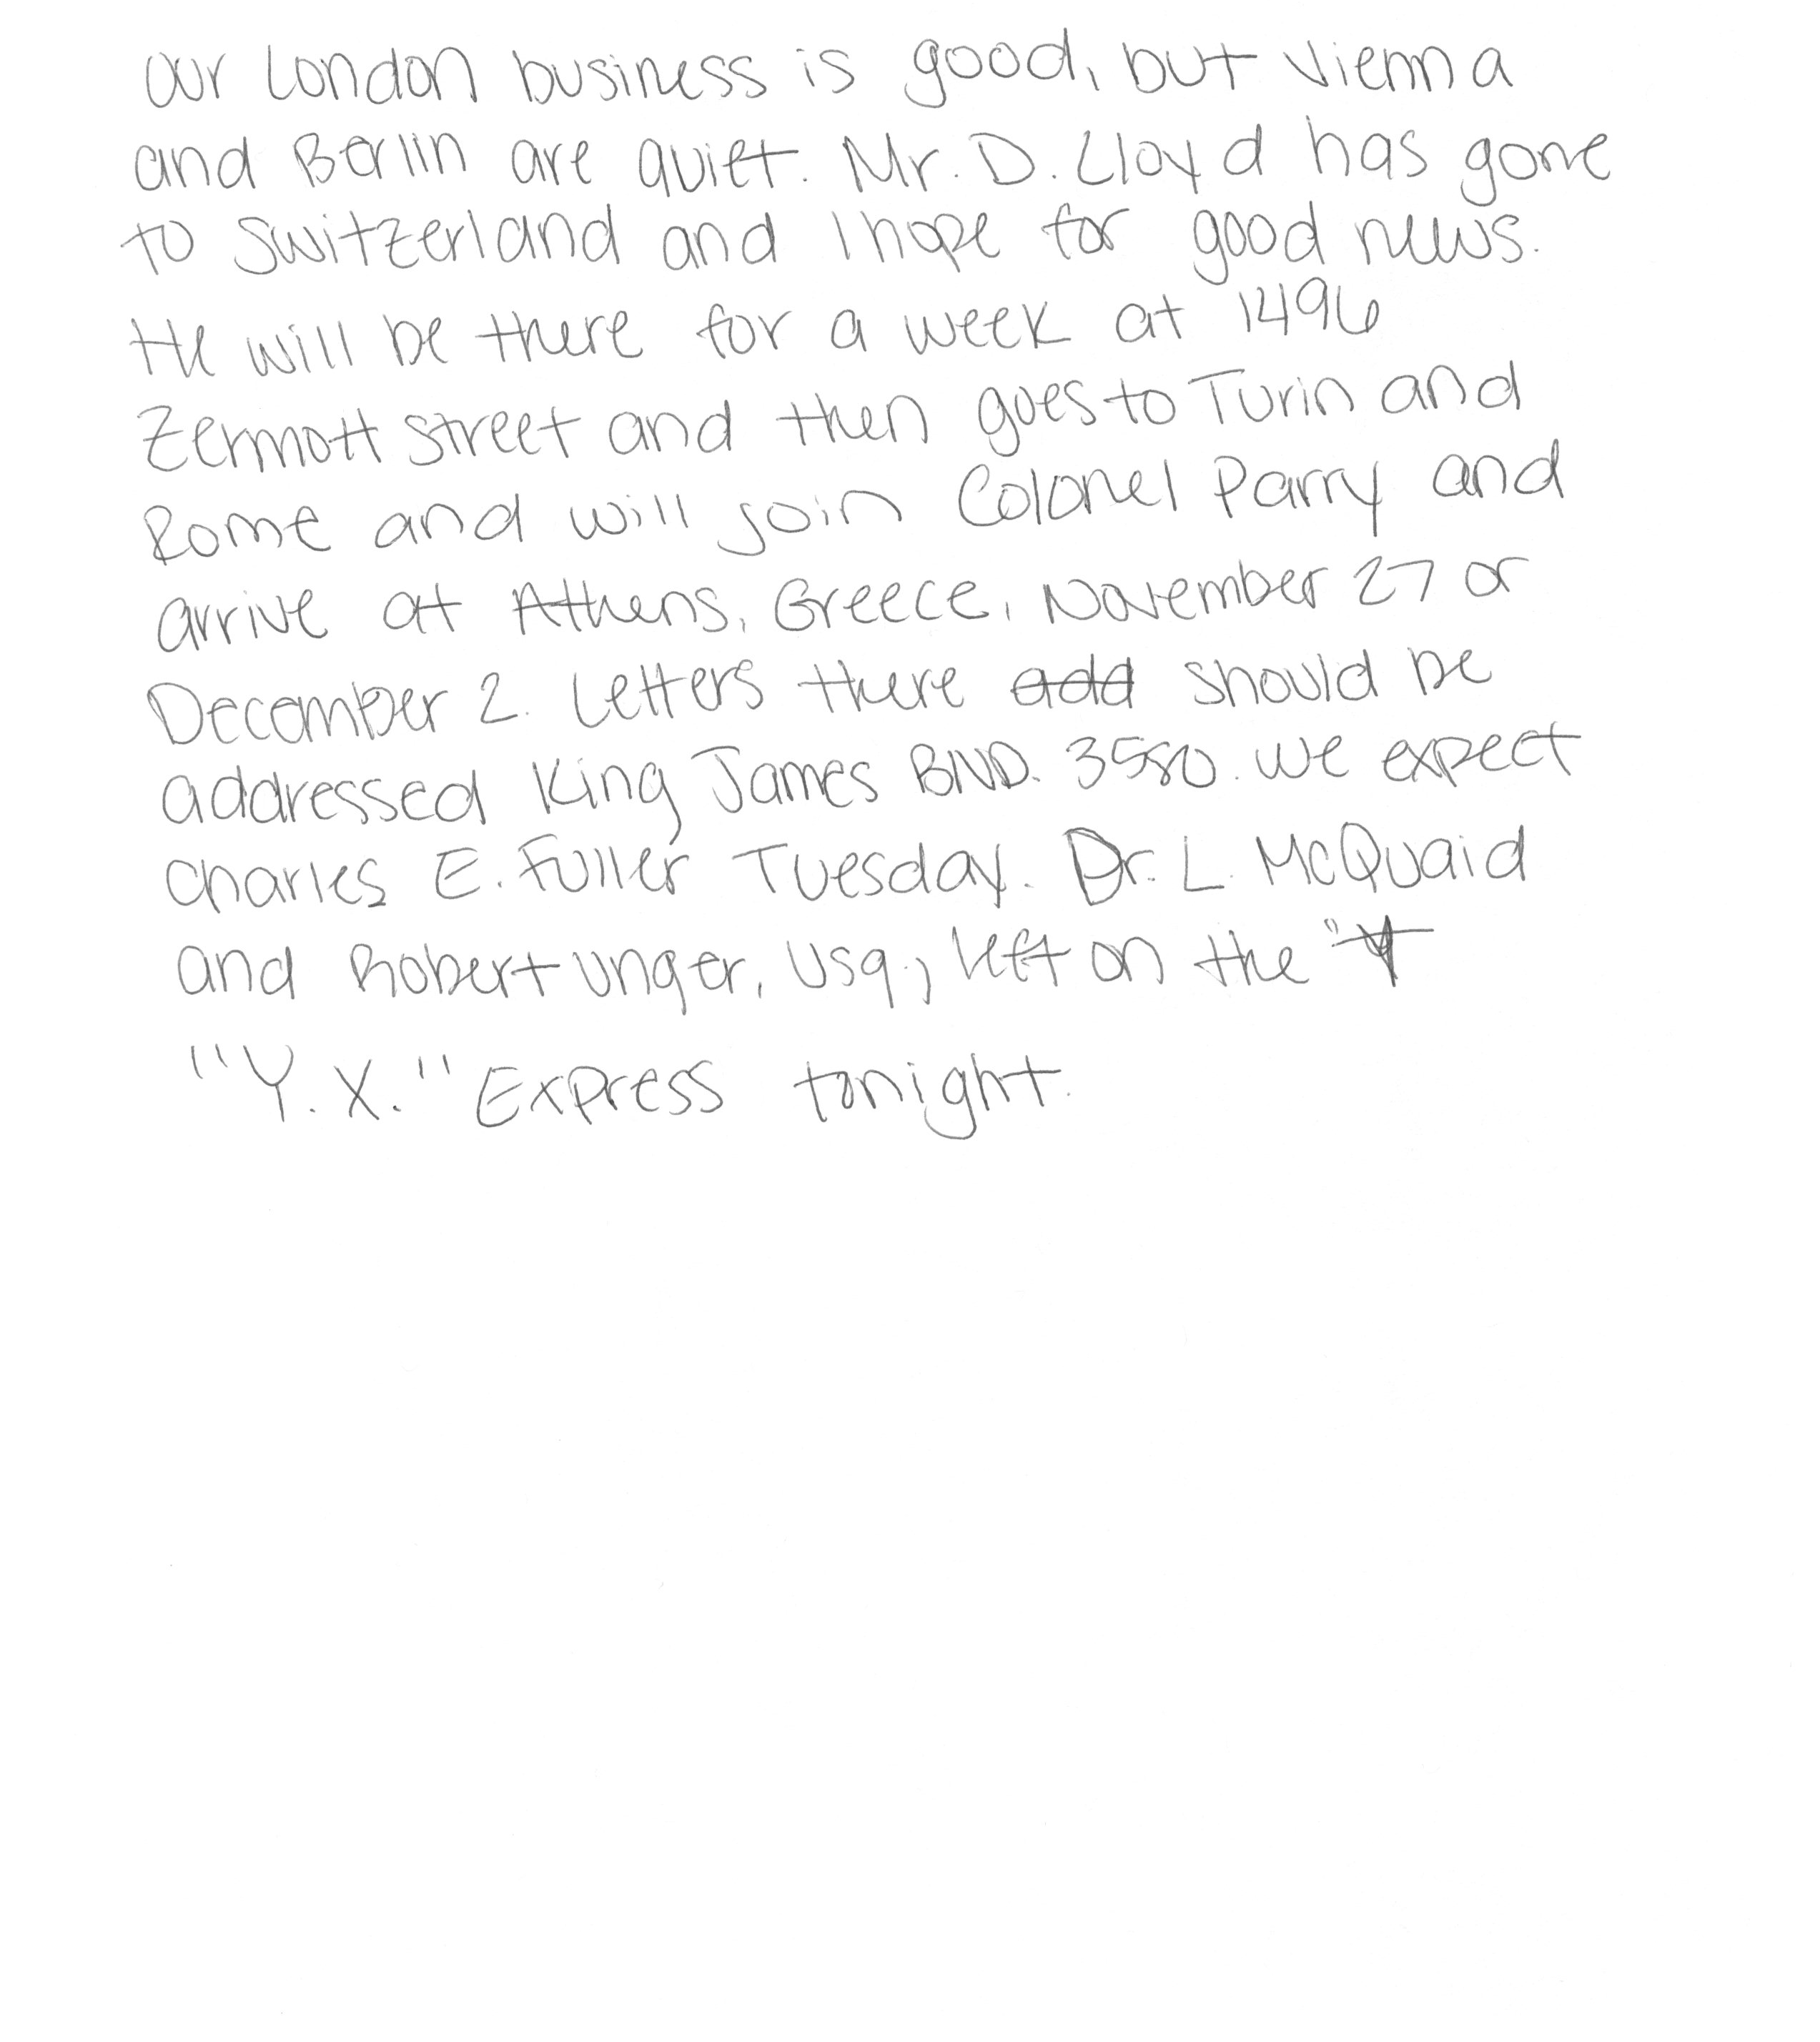 Our London business is good, but Vienna
and Berlin are quiet. Mr. D. Lloyd has gone
to Switzerland and I hope for good news.
He will be there for a week at 1496
Zermott Street and then goes to Turin and
Rome and will join Colonel Parry and
arrive at Athens, Greece, November 27 or
December 2. Letters there add should be
addressed King James BlVD. 3580. We expect
Charles E. Fuller Tuesday. Dr. L. McQuaid
and Robert Unger, Usq., left on the "Y
"Y.X." Express tonight.